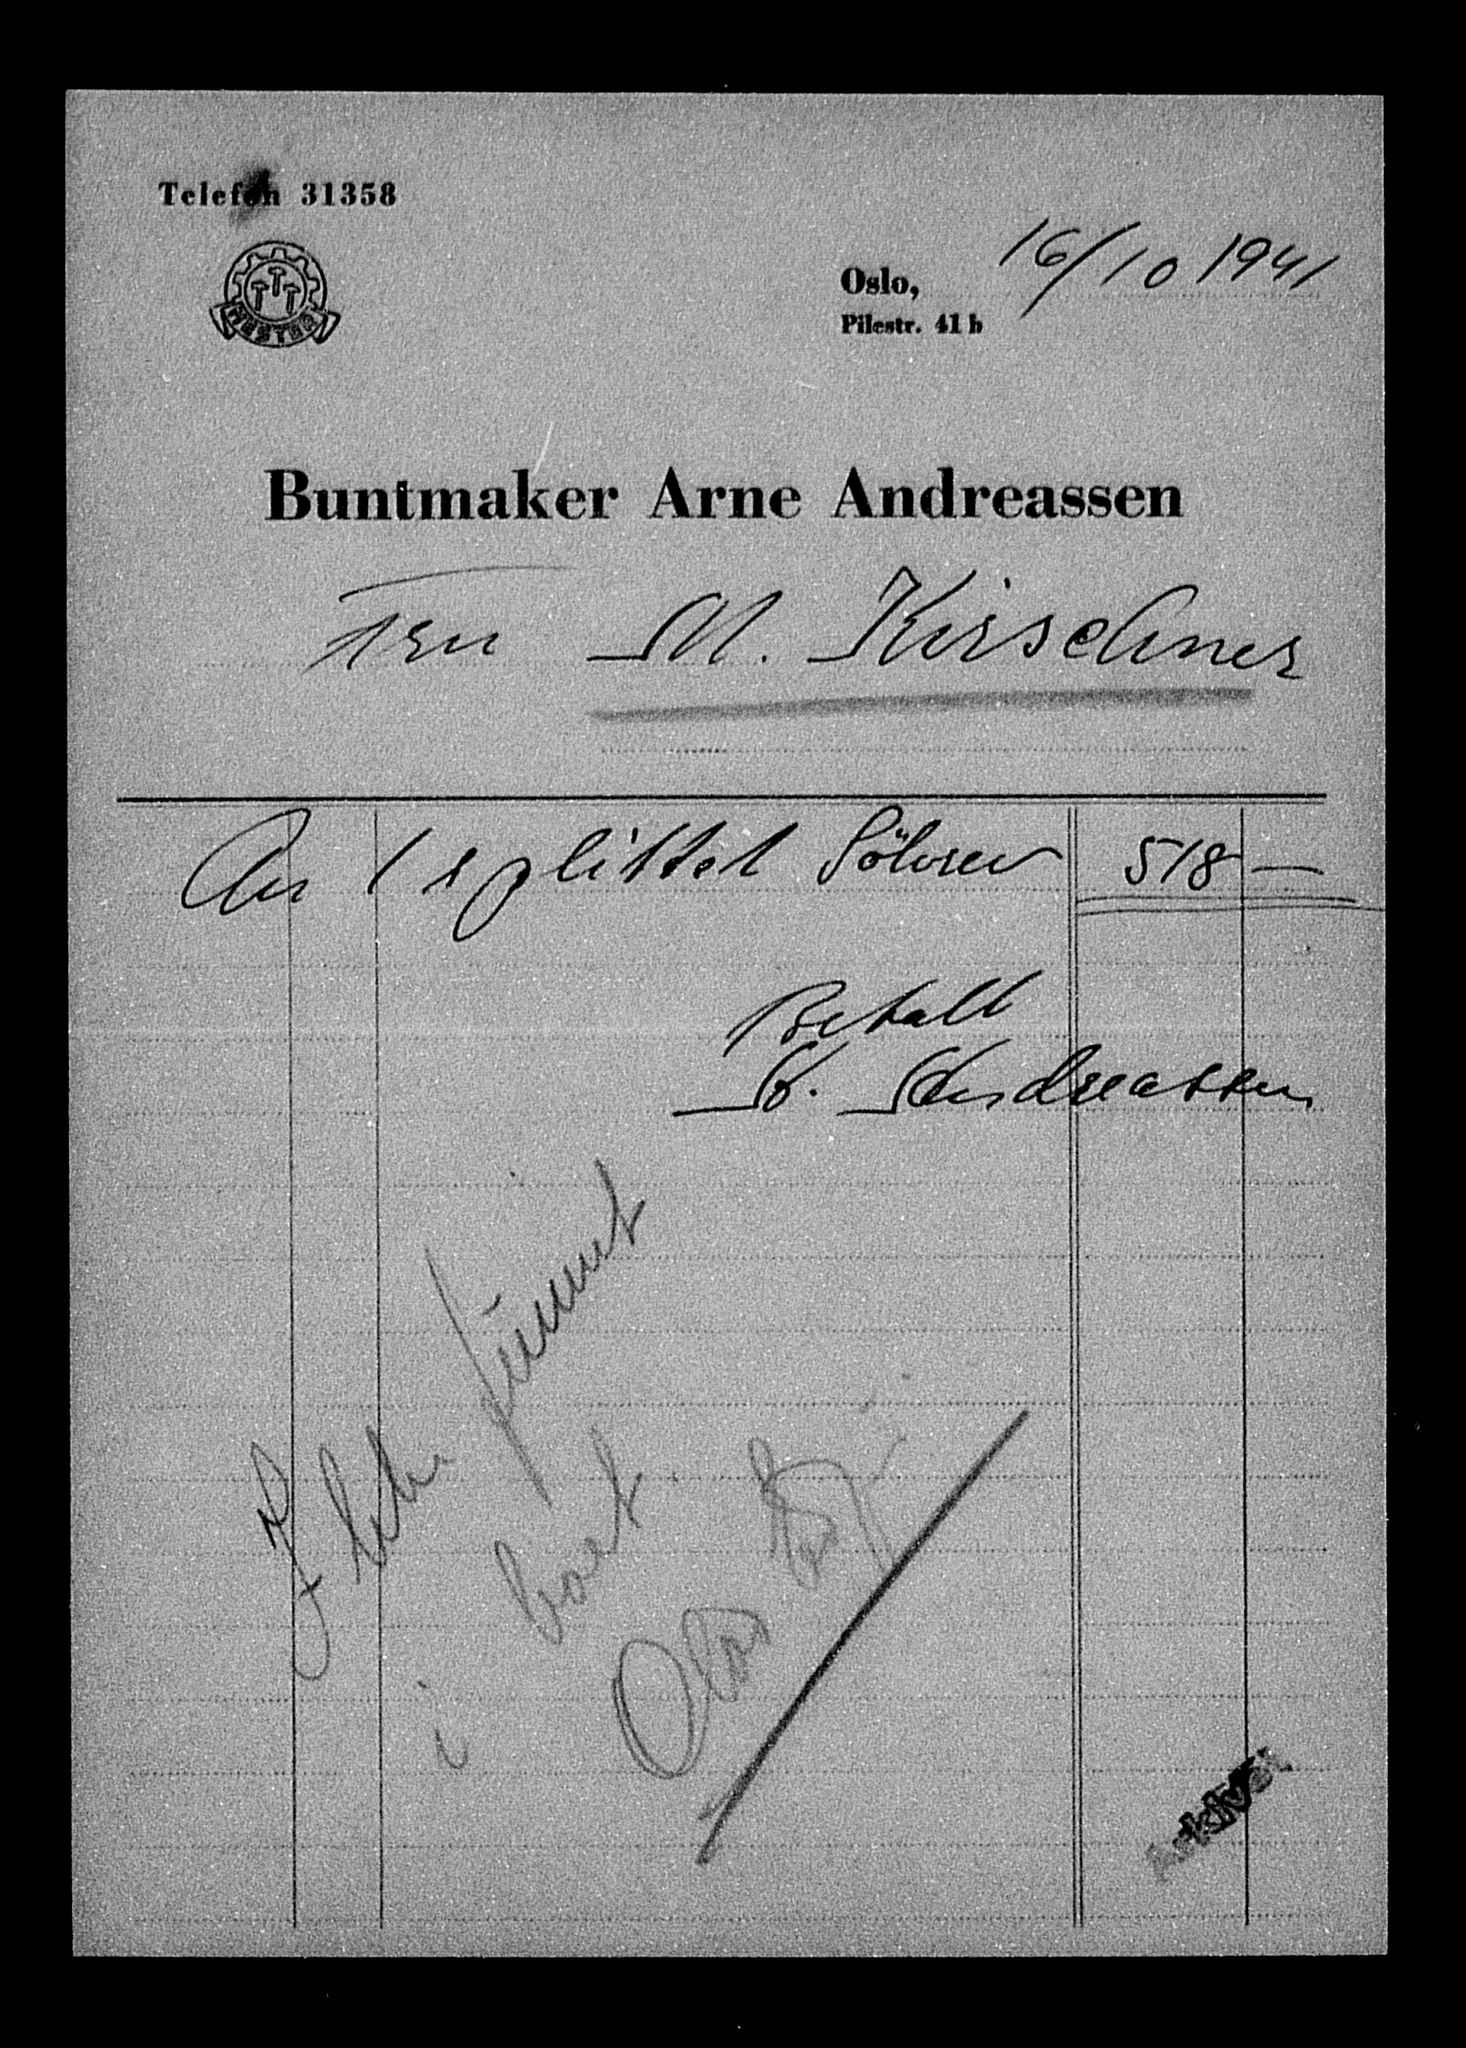 Telefon 31358
MESTER
Oslo, 16/10 1941
Pilestr. 41 b
Buntmaker Arne Andreassen
Fru M. Kirschner
An 1 splittet Sölvrev 518 —
Betalt
A. Andreassen
Ikke funnet
i boet.
Oslo
Arkivet